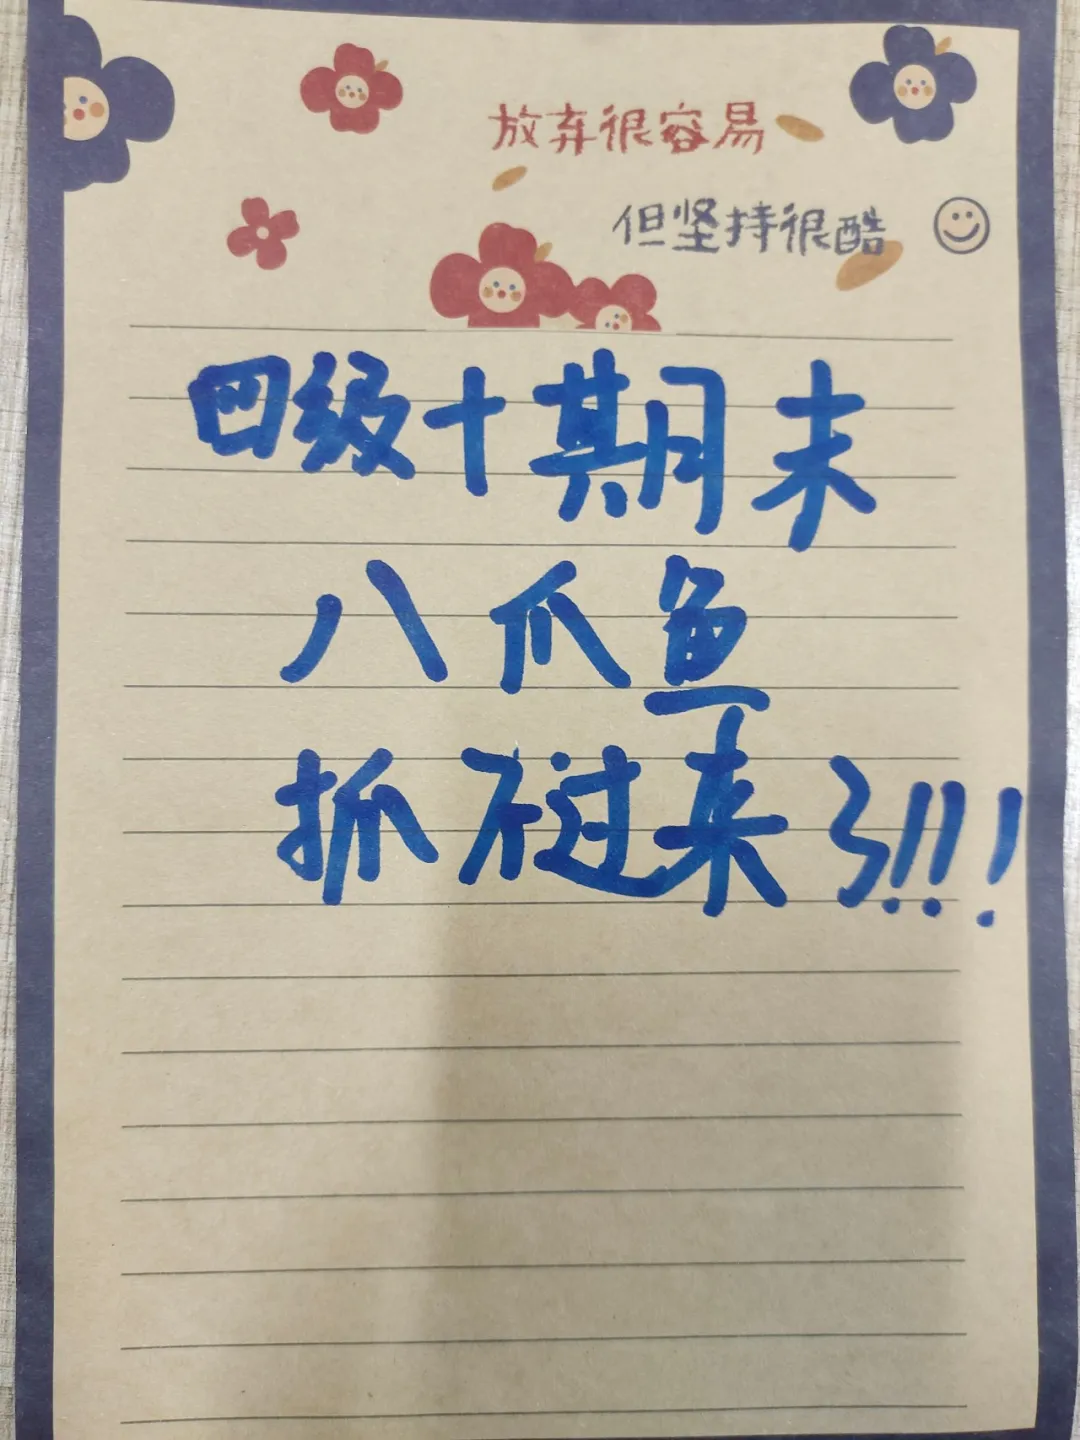 放弃很容易
但坚持很酷
四级十期末
八爪鱼
抓不过来了!!!